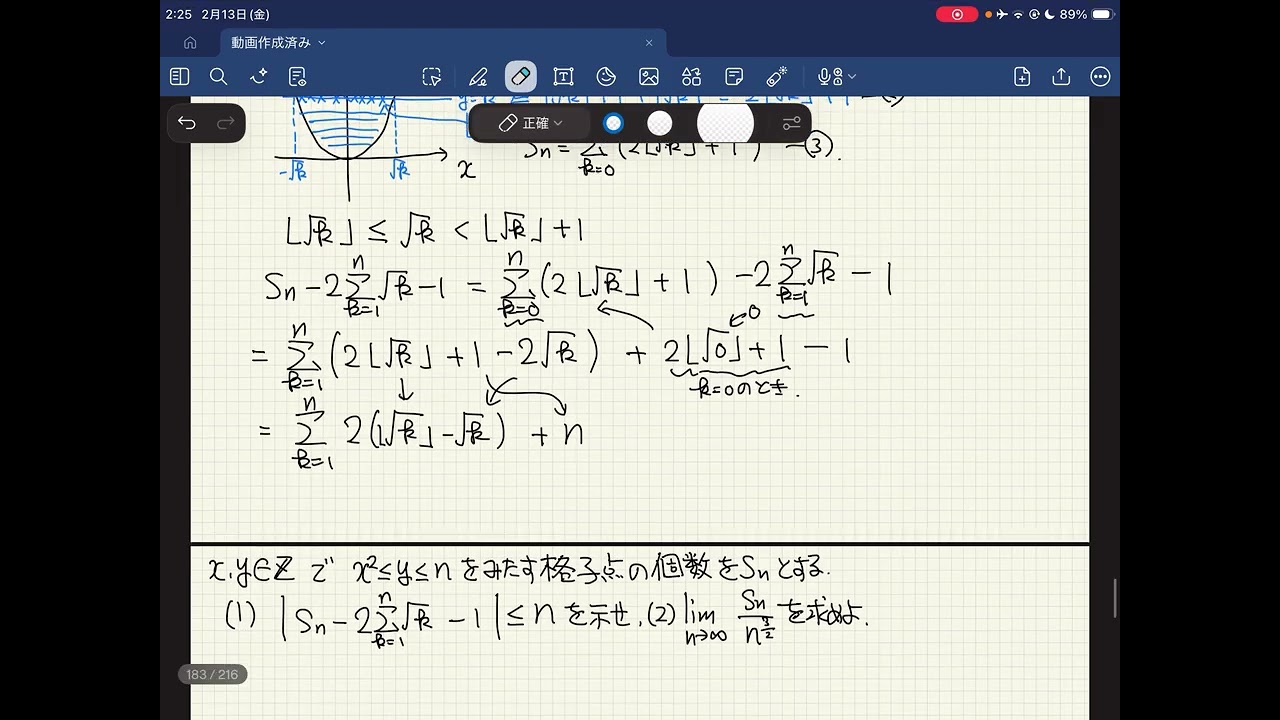 2:25 2月13日(金) 89%
動画作成済み
正確
Sn = Σ_{k=0} (2⌊√k⌋+1) —③.
-√k √k x
⌊√k⌋ ≤ √k < ⌊√k⌋+1
Sn-2Σ_{k=1}^{n}√k-1 = Σ_{k=0}^{n}(2⌊√k⌋+1) -2Σ_{k=1}^{n}√k-1
= Σ_{k=1}^{n}(2⌊√k⌋+1-2√k) + 2⌊√0⌋+1-1
0
k=0のとき.
= Σ_{k=1}^{n} 2(⌊√k⌋-√k) + n
x,y∈Z で x²≤y≤n をみたす格子点の個数をSnとする.
(1) |Sn-2Σ_{k=1}^{n}√k-1| ≤ n を示せ. (2) lim_{n→∞} Sn/n^{3/2} を求めよ.
183 / 216